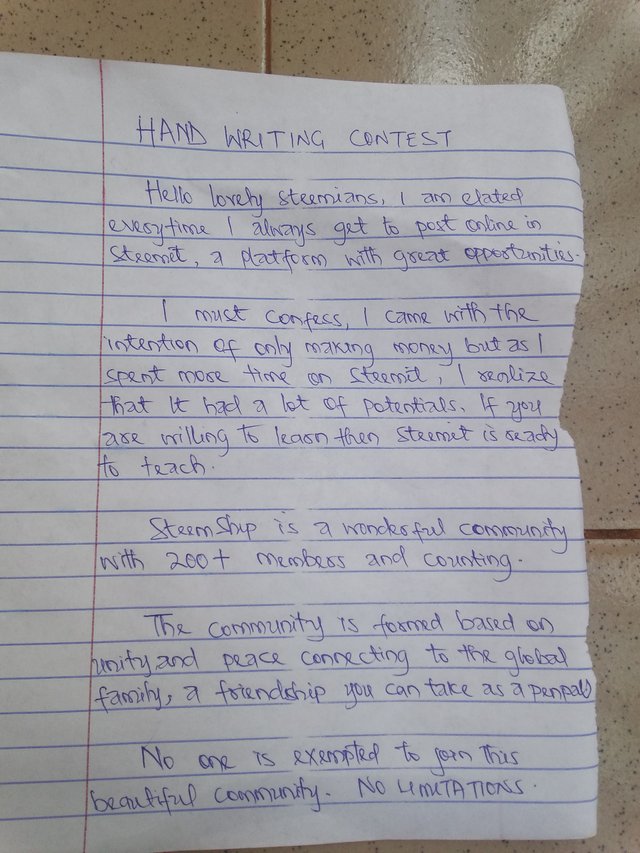 HAND WRITING CONTEST
Hello lovely steemians, I am elated
everytime I always get to post online in
Steemit, a platform with great opportunities.
I must confess, I came with the
intention of only making money but as I
spent more time on Steemit, I realize
that it had a lot of potentials. If you
are willing to learn then Steemit is ready
to teach.
SteemShip is a wonderful community
with 200+ members and counting.
The community is formed based on
unity and peace connecting to the global
family, a friendship you can take as a penpal
No one is exempted to join this
beautiful community. NO LIMITATIONS.